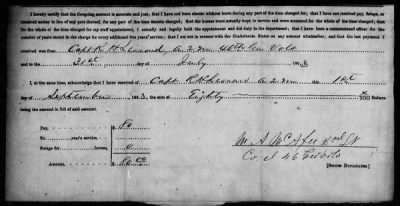 I hereby certify that the foregoing account is accurate and just; that I have not been absent without leave during any part of the time charged for; that I have not received pay, forage, or
received money in lieu of any part thereof, for any part of the time therein charged; that the horses were actually kept in service and were mustered for the whole of the time charged; that
for the whole of the time charged for my staff appointment, I actually and legally held the appointment and did duty in the department; that I have been a commissioned officer for the
number of years stated in the charge for every additional five years' service; that I am not in arrears with the Confederate States on any account whatsoever; and that the last payment I
received was from Capt A 2 M 46th Vols and to the
31st day of July 186
I, at the same time, acknowledge that I have received of Capt A 2 M this 1st
day of September 1863, the sum of Eighty Dollars
being the amount in full of said account.
Pay, 80
To years' service,
Forage for horses, 0
Amount, $ 80 00
M A McAfee Lt
Co 46
[Signed Duplicates.]